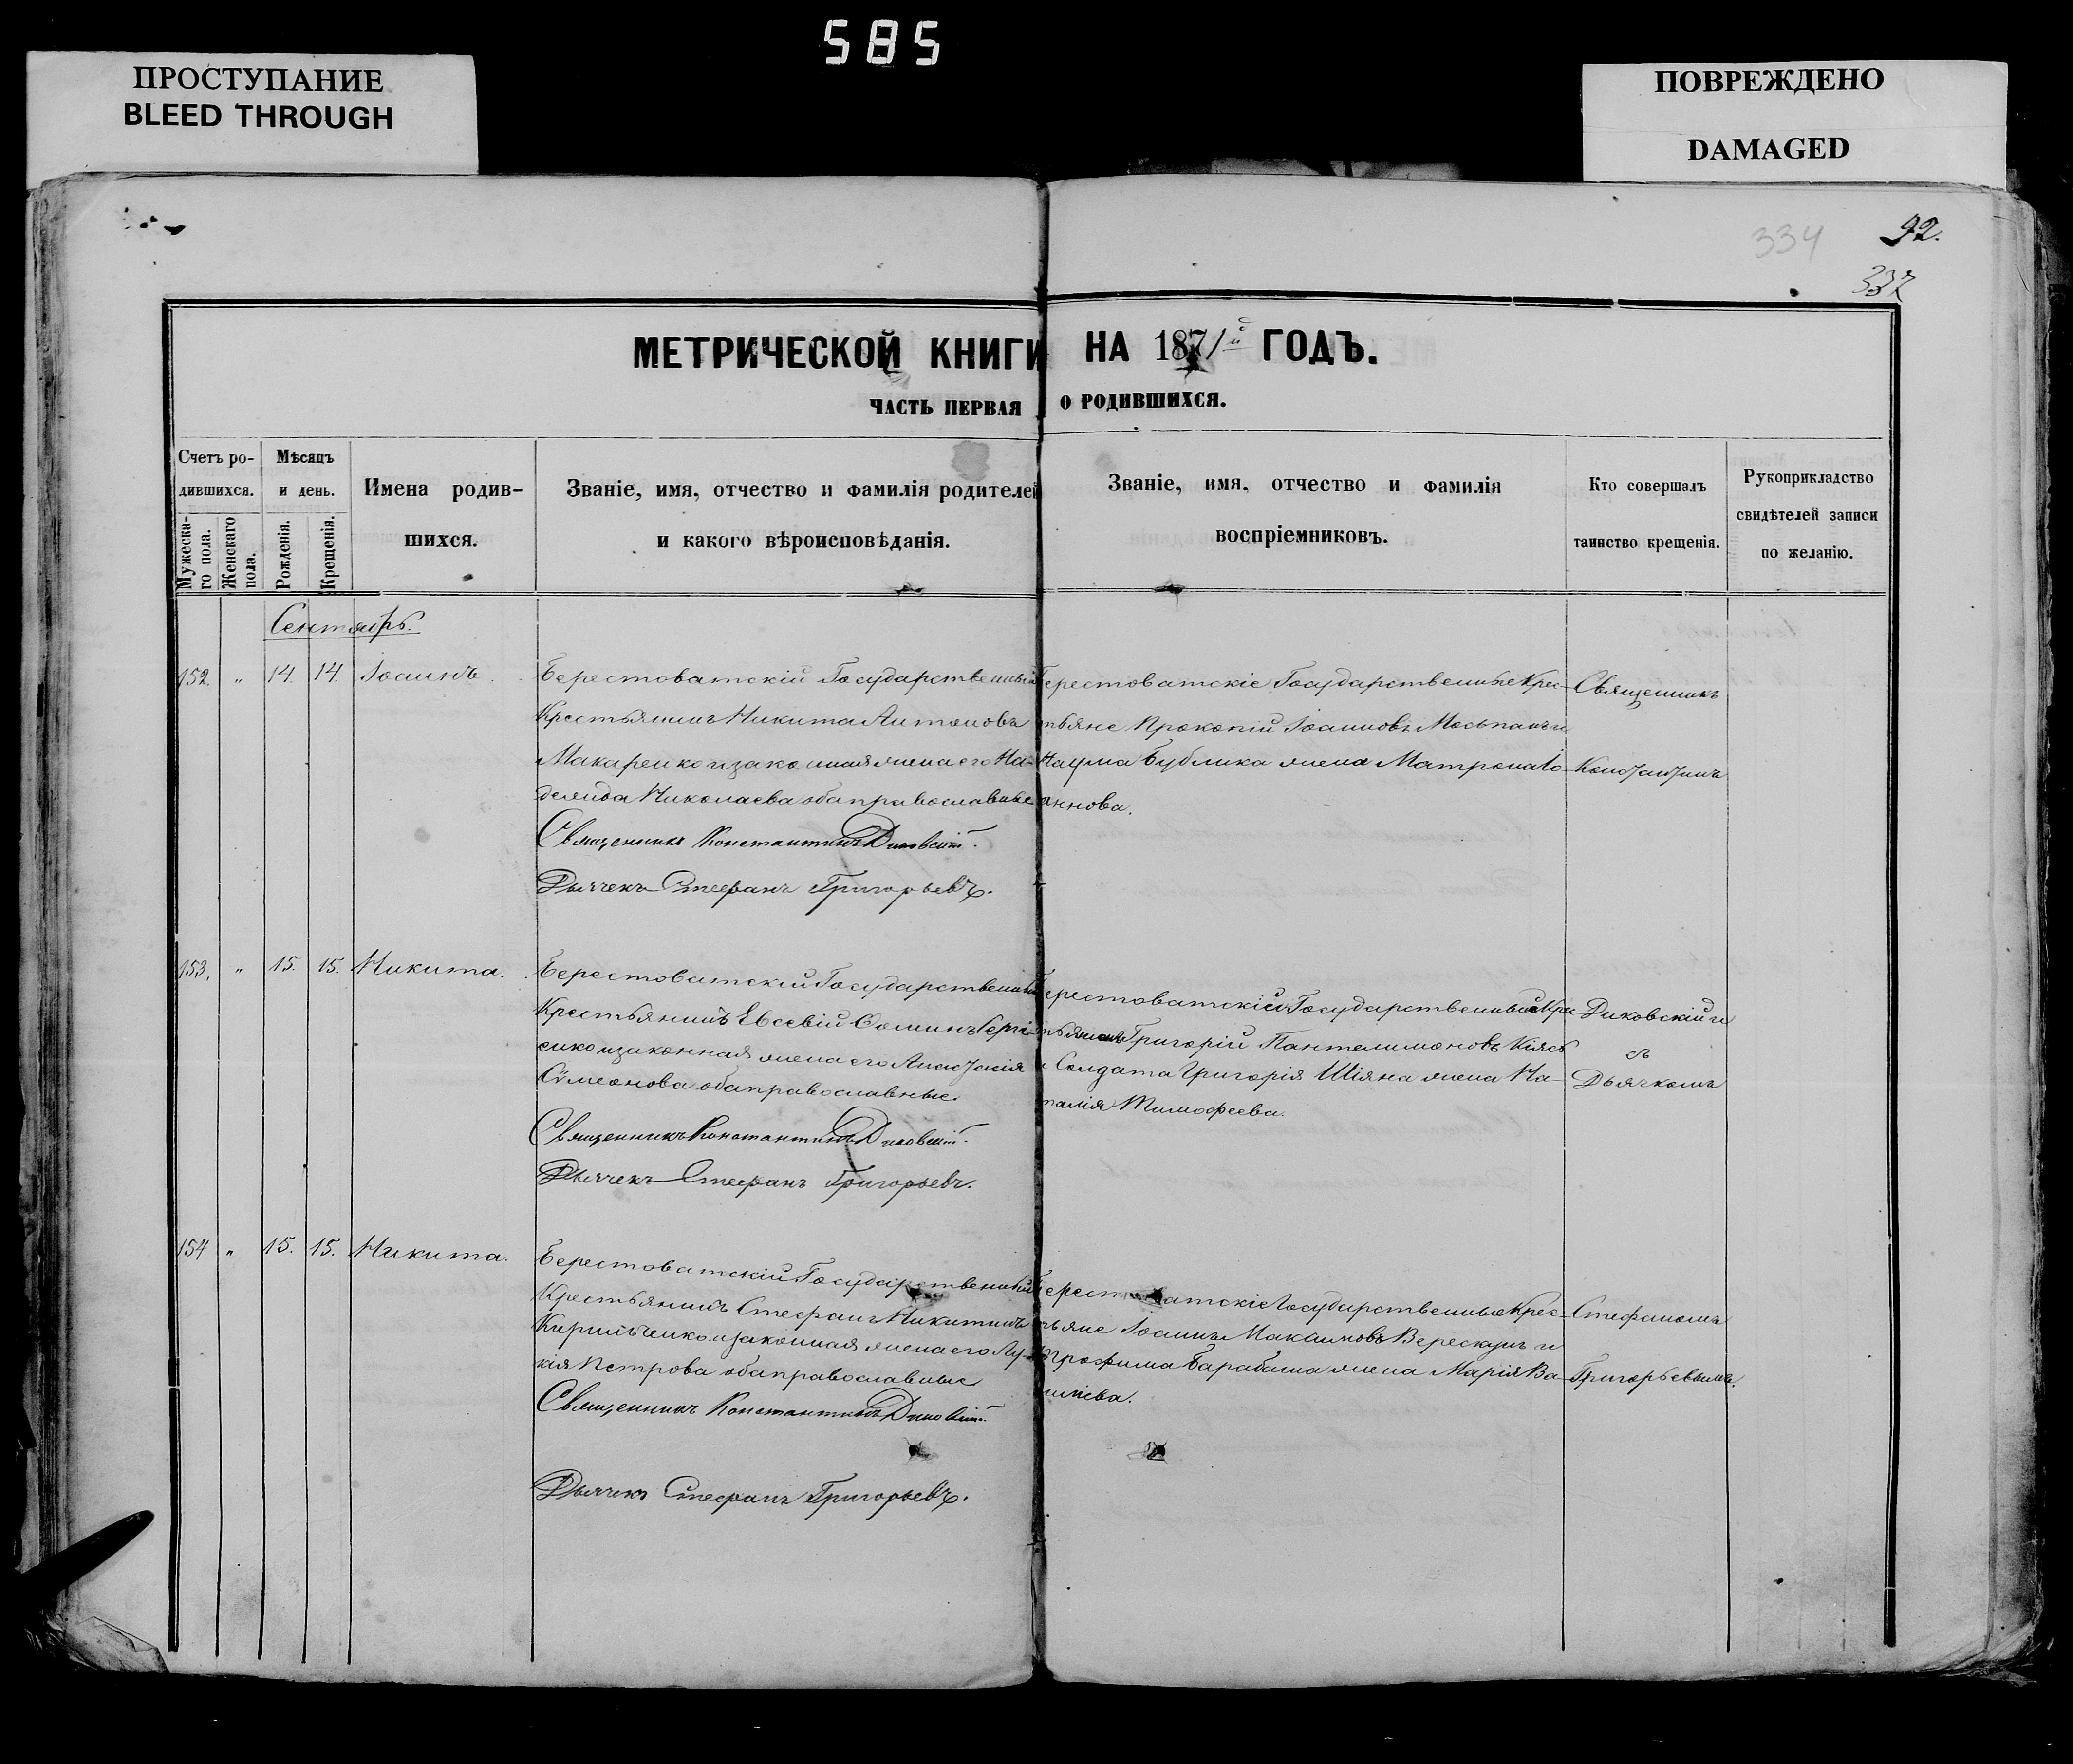 585
ПРОСТУПАНИЕ
BLEED THROUGH
ПОВРЕЖДЕНО
DAMAGED
334
92.
337
МЕТРИЧЕСКОЙ КНИГИ НА 1871й ГОДЪ.
ЧАСТЬ ПЕРВАЯ О РОДИВШИХСЯ.
Счетъ ро-
дившихся.
Мужеска-
го пола.
Женскаго
пола.
Мѣсяцъ
и день.
Рожденія.
Крещенія.
Имена родив-
шихся.
Званіе, имя, отчество и фамилія родителей
и какого вѣроисповѣданія.
Званіе, имя, отчество и фамилія
воспріемниковъ.
Кто совершалъ
таинство крещенія.
Рукоприкладство
свидѣтелей записи
по желанію.
Сентябрь.
152. " 14. 14. Іоаннъ.
Берестоватскій Государственный
Крестьянинъ Никита Антоновъ
Макаренко и законная жена его На-
Николаева оба православные
Священникъ Константинъ Диковскій.
Дьячекъ Стефанъ Григорьевъ.
Берестоватскіе Государственные Крес-
тьяне Прокопій Іоанновъ Мосьпанъ и
Наума Бублика жена Матрона Іо-
аннова.
Священникъ
Константинъ
153. " 15. 15. Никита.
Берестоватскій Государственный
Крестьянинъ Евсевій Ѳоминъ
енко и законная жена его Анастасія
Сѵмеонова оба православные.
Священникъ Константинъ Диковскій.
Дьячекъ Стефанъ Григорьевъ.
Берестоватскій Государственный Крес-
тьянинъ Григорій Пантелимоновъ
и Солдата Григорія Шіяна жена На-
талія Тимофеева.
Диковскій и
съ
Дьячкомъ
154 " 15. 15. Никита.
Берестоватскій Государственный
Крестьянинъ Стефанъ Никитинъ
Кирильченко и законная жена его Лу-
кія Петрова оба православные
Священникъ Константинъ Диковскій.
Дьячекъ Стефанъ Григорьевъ.
Берестоватскіе Государственные Крес-
тьяне Іоаннъ Максимовъ Верескунъ и
Трофима Барабаша жена Марія Ва-
силіева.
Стефаномъ
Григорьевымъ.